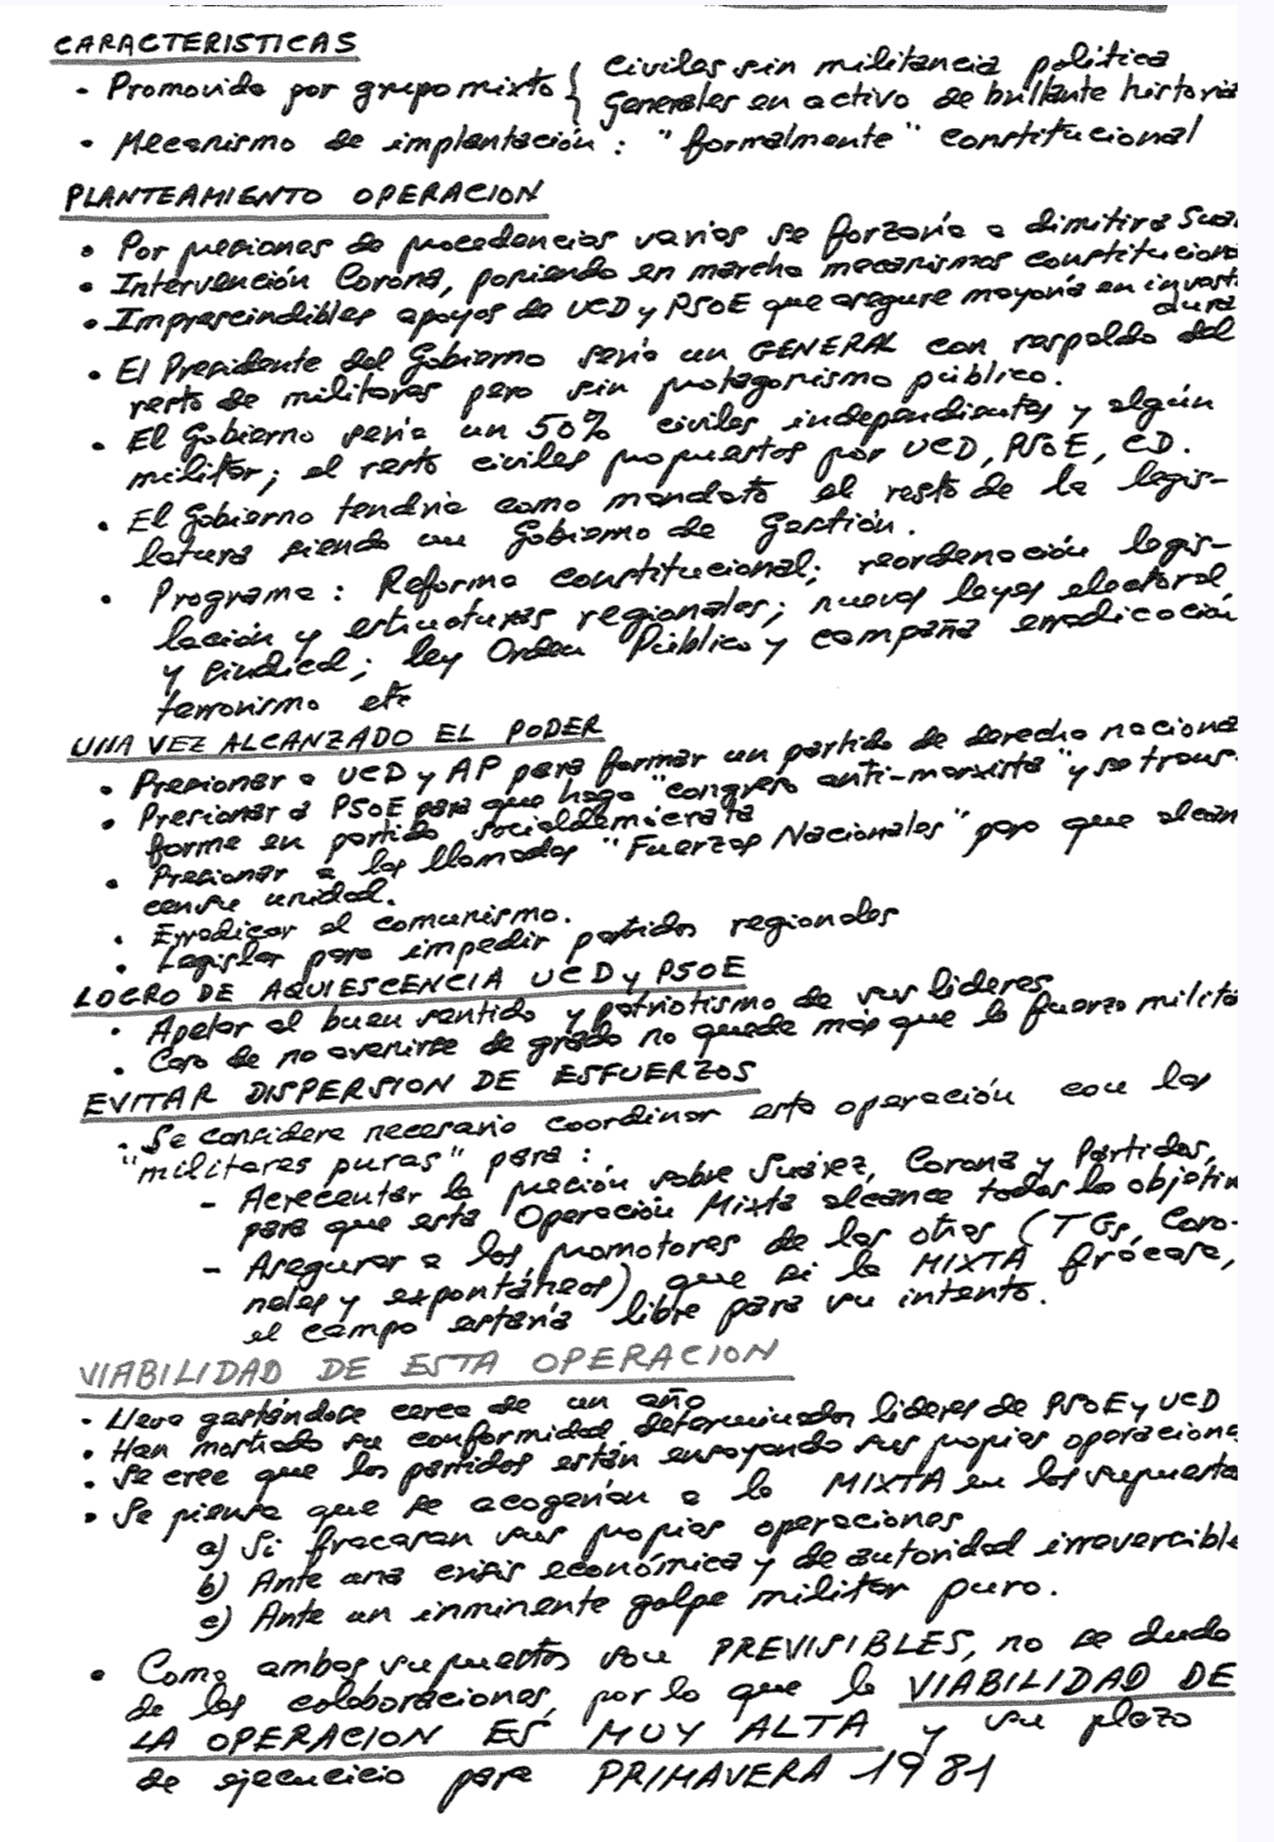 CARACTERISTICAS
- Promovida por grupo mixto { civiles sin militancia política
Generales en activo de brillante historia
• Mecanismo de implantación: "formalmente" constitucional
PLANTEAMIENTO OPERACION
• Por presiones de procedencias varias se forzaría a dimitir a Suá
• Intervención Corona, poniendo en marcha mecanismos constituciona
• Imprescindibles apoyos de UCD y PSOE que asegure mayoría en investi
dura
• El Presidente del Gobierno sería un GENERAL con respaldo del
resto de militares pero sin protagonismo público.
• El Gobierno sería un 50% civiles independientes y algún
militar; el resto civiles propuestos por UCD, PSOE, CD.
• El Gobierno tendría como mandato el resto de la legis-
latura siendo un Gobierno de Gestión.
• Programa: Reforma constitucional; reordenación legis-
lación y estructuras regionales; nuevas leyes electoral
y sindical; ley Orden Público y campaña erradicación
terrorismo etc
UNA VEZ ALCANZADO EL PODER
• Presionar a UCD y AP para formar un partido de derecha naciona
• Presionar a PSOE para que haga "congreso anti-marxista" y se trans-
forme en partido socialdemócrata
• Presionar a las llamadas "Fuerzas Nacionales" para que alcan
cen su unidad.
• Erradicar el comunismo.
• Legislar para impedir partidos regionales
LOGRO DE AQUIESCENCIA UCD y PSOE
• Apelar al buen sentido y patriotismo de sus líderes
• Caso de no avenirse de grado no quede más que la fuerza milita
EVITAR DISPERSION DE ESFUERZOS
• Se considera necesario coordinar esta operación con las
"militares puras" para:
- Acrecentar la presión sobre Suárez, Corona y Partidos,
para que esta Operación Mixta alcance todos lo objetiv
- Asegurar a los promotores de las otras (TGs, Coro-
neles y espontáneos) que si la MIXTA frácasa,
el campo estaría libre para su intento.
VIABILIDAD DE ESTA OPERACION
• Lleva gestándose cerca de un año
• Han mostrado su conformidad determinados líderes de PSOE y UCD
• Se cree que los partidos están ensayando sus propias operacione
• Se piensa que se acogerían a la MIXTA en los supuesto
a) Si fracasan sus propias operaciones
b) Ante una crisis económica y de autoridad irreversible
c) Ante un inminente golpe militar puro.
• Como ambos supuestos son PREVISIBLES, no se duda
de las colaboraciones, por lo que la VIABILIDAD DE
LA OPERACION ES MUY ALTA y su plazo
de ejecucicio para PRIMAVERA 1981